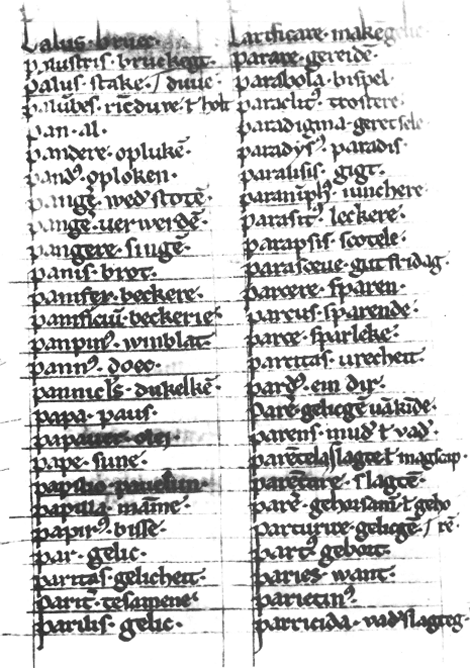 Palus · bruec ·
palustris · bruckegt ·
palus · stake · / duue ·
palūbes · rīcduve · ł holt
pan · al ·
pandere · oplukē ·
pand⁹ · oploken ·
pangē · wed᷑ stotē ·
pangē · uerwerdē ·
pangere · singē ·
panis · brot ·
panifex · beckere ·
panificiū · beckerie ·
pampin⁹ · winblat ·
pann⁹ · doec ·
pannicl᷑s · dukelkē ·
papa · paus ·
papauer · olei ·
pape · sune ·
papilio · pauelun ·
papilla · māme ·
papir⁹ · bisse ·
par · gelic ·
paritas · gelicheit ·
parit᷑ · tesamene ·
parilis · gelic ·
Parificare · makēgelic ·
parare · gereidē ·
parabola · bispel ·
paraclit⁹ · trostere ·
paradigma · geretsele
paradys⁹ · paradis ·
paralisis · gigt ·
paranīph⁹ · iunchere
parasit⁹ · leckere ·
parapsis · scotele ·
parasceue · gutfridag ·
parcere · sparen ·
parcus · sparende ·
parce · sparleke ·
parcitas · urecheit ·
pard⁹ · ein dir ·
parē · geliegē uākīde ·
parens · mud᷑ ł vad᷑ ·
parētela · slagte ł magscap ·
parētare · slagtē ·
parē · gehorsam̄ · ł geho
parturire · geliegē · / rē ·
part⁹ · gebort ·
paries · want ·
parietin⁹ ·
parricida · vad᷑slagteg ·